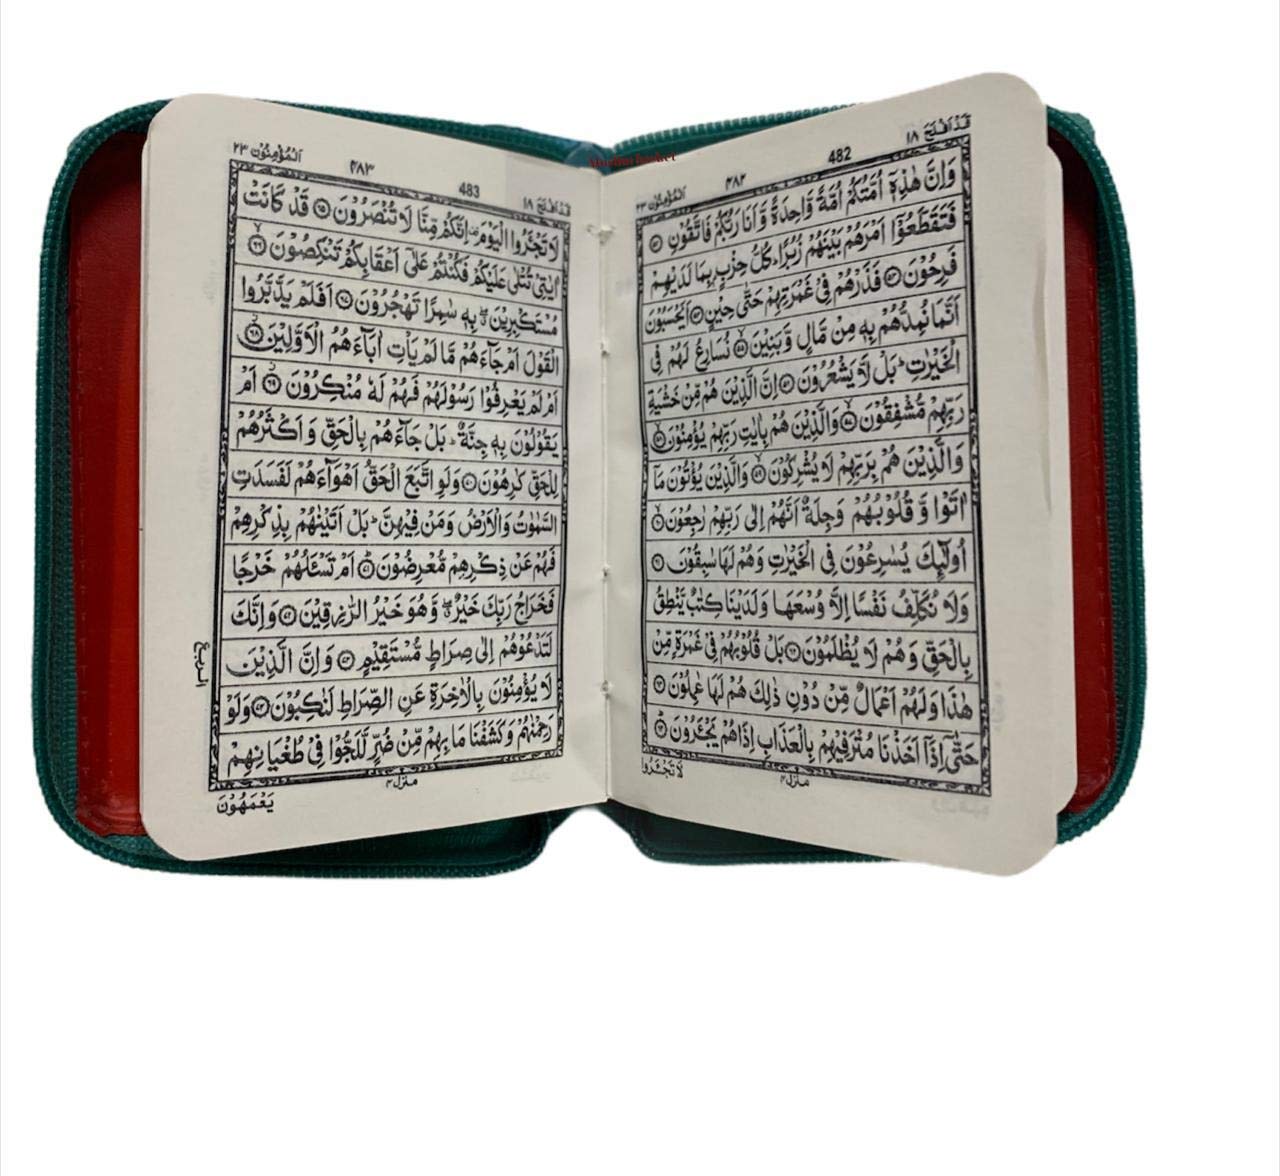 قَدْ اَفْلَحَ ١٨
482
٤٨٢
اَلْمُؤْمِنُوْن ٢٣
وَاِنَّ هٰذِهٖۤ اُمَّتُكُمْ اُمَّةً وَّاحِدَةً وَّاَنَا رَبُّكُمْ فَاتَّقُوْنِ ﴿٥٢﴾
فَتَقَطَّعُوْۤا اَمْرَهُمْ بَيْنَهُمْ زُبُرًا ؕ كُلُّ حِزْبٍۭ بِمَا لَدَيْهِمْ
فَرِحُوْنَ ﴿٥٣﴾ فَذَرْهُمْ فِيْ غَمْرَتِهِمْ حَتّٰى حِيْنٍ ﴿٥٤﴾ اَيَحْسَبُوْنَ
اَنَّمَا نُمِدُّهُمْ بِهٖ مِنْ مَّالٍ وَّبَنِيْنَ ﴿٥٥﴾ نُسَارِعُ لَهُمْ فِي
الْخَيْرٰتِ ؕ بَلْ لَّا يَشْعُرُوْنَ ﴿٥٦﴾ اِنَّ الَّذِيْنَ هُمْ مِّنْ خَشْيَةِ
رَبِّهِمْ مُّشْفِقُوْنَ ﴿٥٧﴾ وَالَّذِيْنَ هُمْ بِاٰيٰتِ رَبِّهِمْ يُؤْمِنُوْنَ ﴿٥٨﴾
وَالَّذِيْنَ هُمْ بِرَبِّهِمْ لَا يُشْرِكُوْنَ ﴿٥٩﴾ وَالَّذِيْنَ يُؤْتُوْنَ مَاۤ
اٰتَوْا وَّقُلُوْبُهُمْ وَجِلَةٌ اَنَّهُمْ اِلٰى رَبِّهِمْ رٰجِعُوْنَ ﴿٦٠﴾
اُولٰٓئِكَ يُسٰرِعُوْنَ فِي الْخَيْرٰتِ وَهُمْ لَهَا سٰبِقُوْنَ ﴿٦١﴾
وَلَا نُكَلِّفُ نَفْسًا اِلَّا وُسْعَهَا وَلَدَيْنَا كِتٰبٌ يَّنْطِقُ
بِالْحَقِّ وَهُمْ لَا يُظْلَمُوْنَ ﴿٦٢﴾ بَلْ قُلُوْبُهُمْ فِيْ غَمْرَةٍ مِّنْ
هٰذَا وَلَهُمْ اَعْمَالٌ مِّنْ دُوْنِ ذٰلِكَ هُمْ لَهَا عٰمِلُوْنَ ﴿٦٣﴾
حَتّٰۤى اِذَاۤ اَخَذْنَا مُتْرَفِيْهِمْ بِالْعَذَابِ اِذَا هُمْ يَجْـَٔرُوْنَ ﴿٦٤﴾
منزل ٤
لَا تَجْـَٔرُوا
قَدْ اَفْلَحَ ١٨
483
٤٨٣
اَلْمُؤْمِنُوْن ٢٣
لَا تَجْـَٔرُوا الْيَوْمَ اِنَّكُمْ مِّنَّا لَا تُنْصَرُوْنَ ﴿٦٥﴾ قَدْ كَانَتْ
اٰيٰتِيْ تُتْلٰى عَلَيْكُمْ فَكُنْتُمْ عَلٰۤى اَعْقَابِكُمْ تَنْكِصُوْنَ ﴿٦٦﴾
مُسْتَكْبِرِيْنَ بِهٖ سٰمِرًا تَهْجُرُوْنَ ﴿٦٧﴾ اَفَلَمْ يَدَّبَّرُوا
الْقَوْلَ اَمْ جَآءَهُمْ مَّا لَمْ يَاْتِ اٰبَآءَهُمُ الْاَوَّلِيْنَ ﴿٦٨﴾
اَمْ لَمْ يَعْرِفُوْا رَسُوْلَهُمْ فَهُمْ لَهٗ مُنْكِرُوْنَ ﴿٦٩﴾ اَمْ
يَقُوْلُوْنَ بِهٖ جِنَّةٌ ؕ بَلْ جَآءَهُمْ بِالْحَقِّ وَاَكْثَرُهُمْ
لِلْحَقِّ كٰرِهُوْنَ ﴿٧٠﴾ وَلَوِ اتَّبَعَ الْحَقُّ اَهْوَآءَهُمْ لَفَسَدَتِ
السَّمٰوٰتُ وَالْاَرْضُ وَمَنْ فِيْهِنَّ ؕ بَلْ اَتَيْنٰهُمْ بِذِكْرِهِمْ
فَهُمْ عَنْ ذِكْرِهِمْ مُّعْرِضُوْنَ ﴿٧١﴾ اَمْ تَسْـَٔلُهُمْ خَرْجًا
فَخَرَاجُ رَبِّكَ خَيْرٌ وَّهُوَ خَيْرُ الرّٰزِقِيْنَ ﴿٧٢﴾ وَاِنَّكَ
لَتَدْعُوْهُمْ اِلٰى صِرَاطٍ مُّسْتَقِيْمٍ ﴿٧٣﴾ وَاِنَّ الَّذِيْنَ
لَا يُؤْمِنُوْنَ بِالْاٰخِرَةِ عَنِ الصِّرَاطِ لَنٰكِبُوْنَ ﴿٧٤﴾ وَلَوْ
رَحِمْنٰهُمْ وَكَشَفْنَا مَا بِهِمْ مِّنْ ضُرٍّ لَّلَجُّوْا فِيْ طُغْيَانِهِمْ
منزل ٤
يَعْمَهُوْنَ